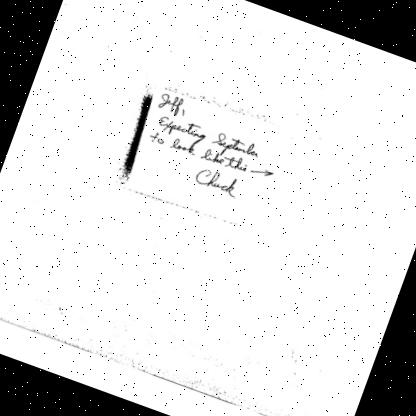 Jeff,
Expecting September
to look like this →
Chuck